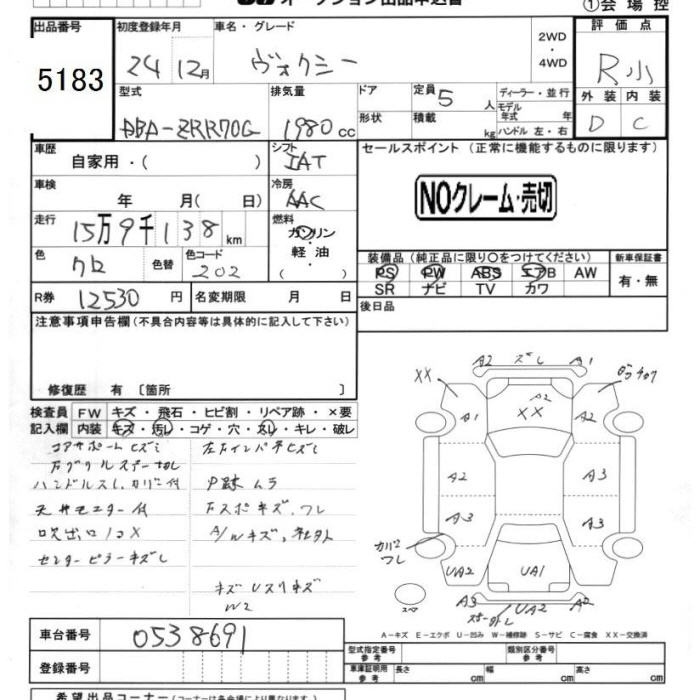 オークション出品申込書
①会場控
出品番号
5183
初度登録年月
24 12月
車名・グレード
ヴォクシー
2WD
・
4WD
評価点
R小
外装 内装
D C
型式
DBA-ZRR70G
排気量
1980 cc
ドア
形状
定員 5 人
積載 kg
ディーラー・並行
モデル年式 年
ハンドル 左・右
車歴
自家用・( )
シフト
IAT
セールスポイント (正常に機能するものに限ります)
NOクレーム・売切
車検
年 月( 日)
冷房
AAC
走行
15万9千138 km
燃料
ガソリン
軽油
色
クロ
色替
色コード
202
装備品 (純正品に限り〇をつけてください)
PS PW ABS エアB AW
SR ナビ TV カワ
新車保証書
有・無
R券 12530 円
名変期限 月 日
後日品
注意事項申告欄 (不具合内容等は具体的に記入して下さい)
修復歴 有 [箇所 ]
検査員記入欄
FW キズ・飛石・ヒビ割・リペア跡・×要
内装 キズ・汚レ・コゲ・穴・スレ・キレ・破レ
コアサポームヒズミ
ハンドルスレ、カバー付
天井モニター付
吹出口1コX
センターピラーキズし
A/Wキズ、社外
W2
A2 ズレ A1
XX
A1 A2 XX A2
A2 A3
A3 A3
カバーワレ
UA2 UA1
A3 UA2 A2
スペア
A-キズ E-エクボ U-凹み W-補修跡 S-サビ C-腐食 XX-交換済
車台番号 0538691
登録番号
型式指定番号 参考
類別区分番号 参考
車庫証明用 参考
長さ cm
幅 cm
高さ cm
希望出品コーナー